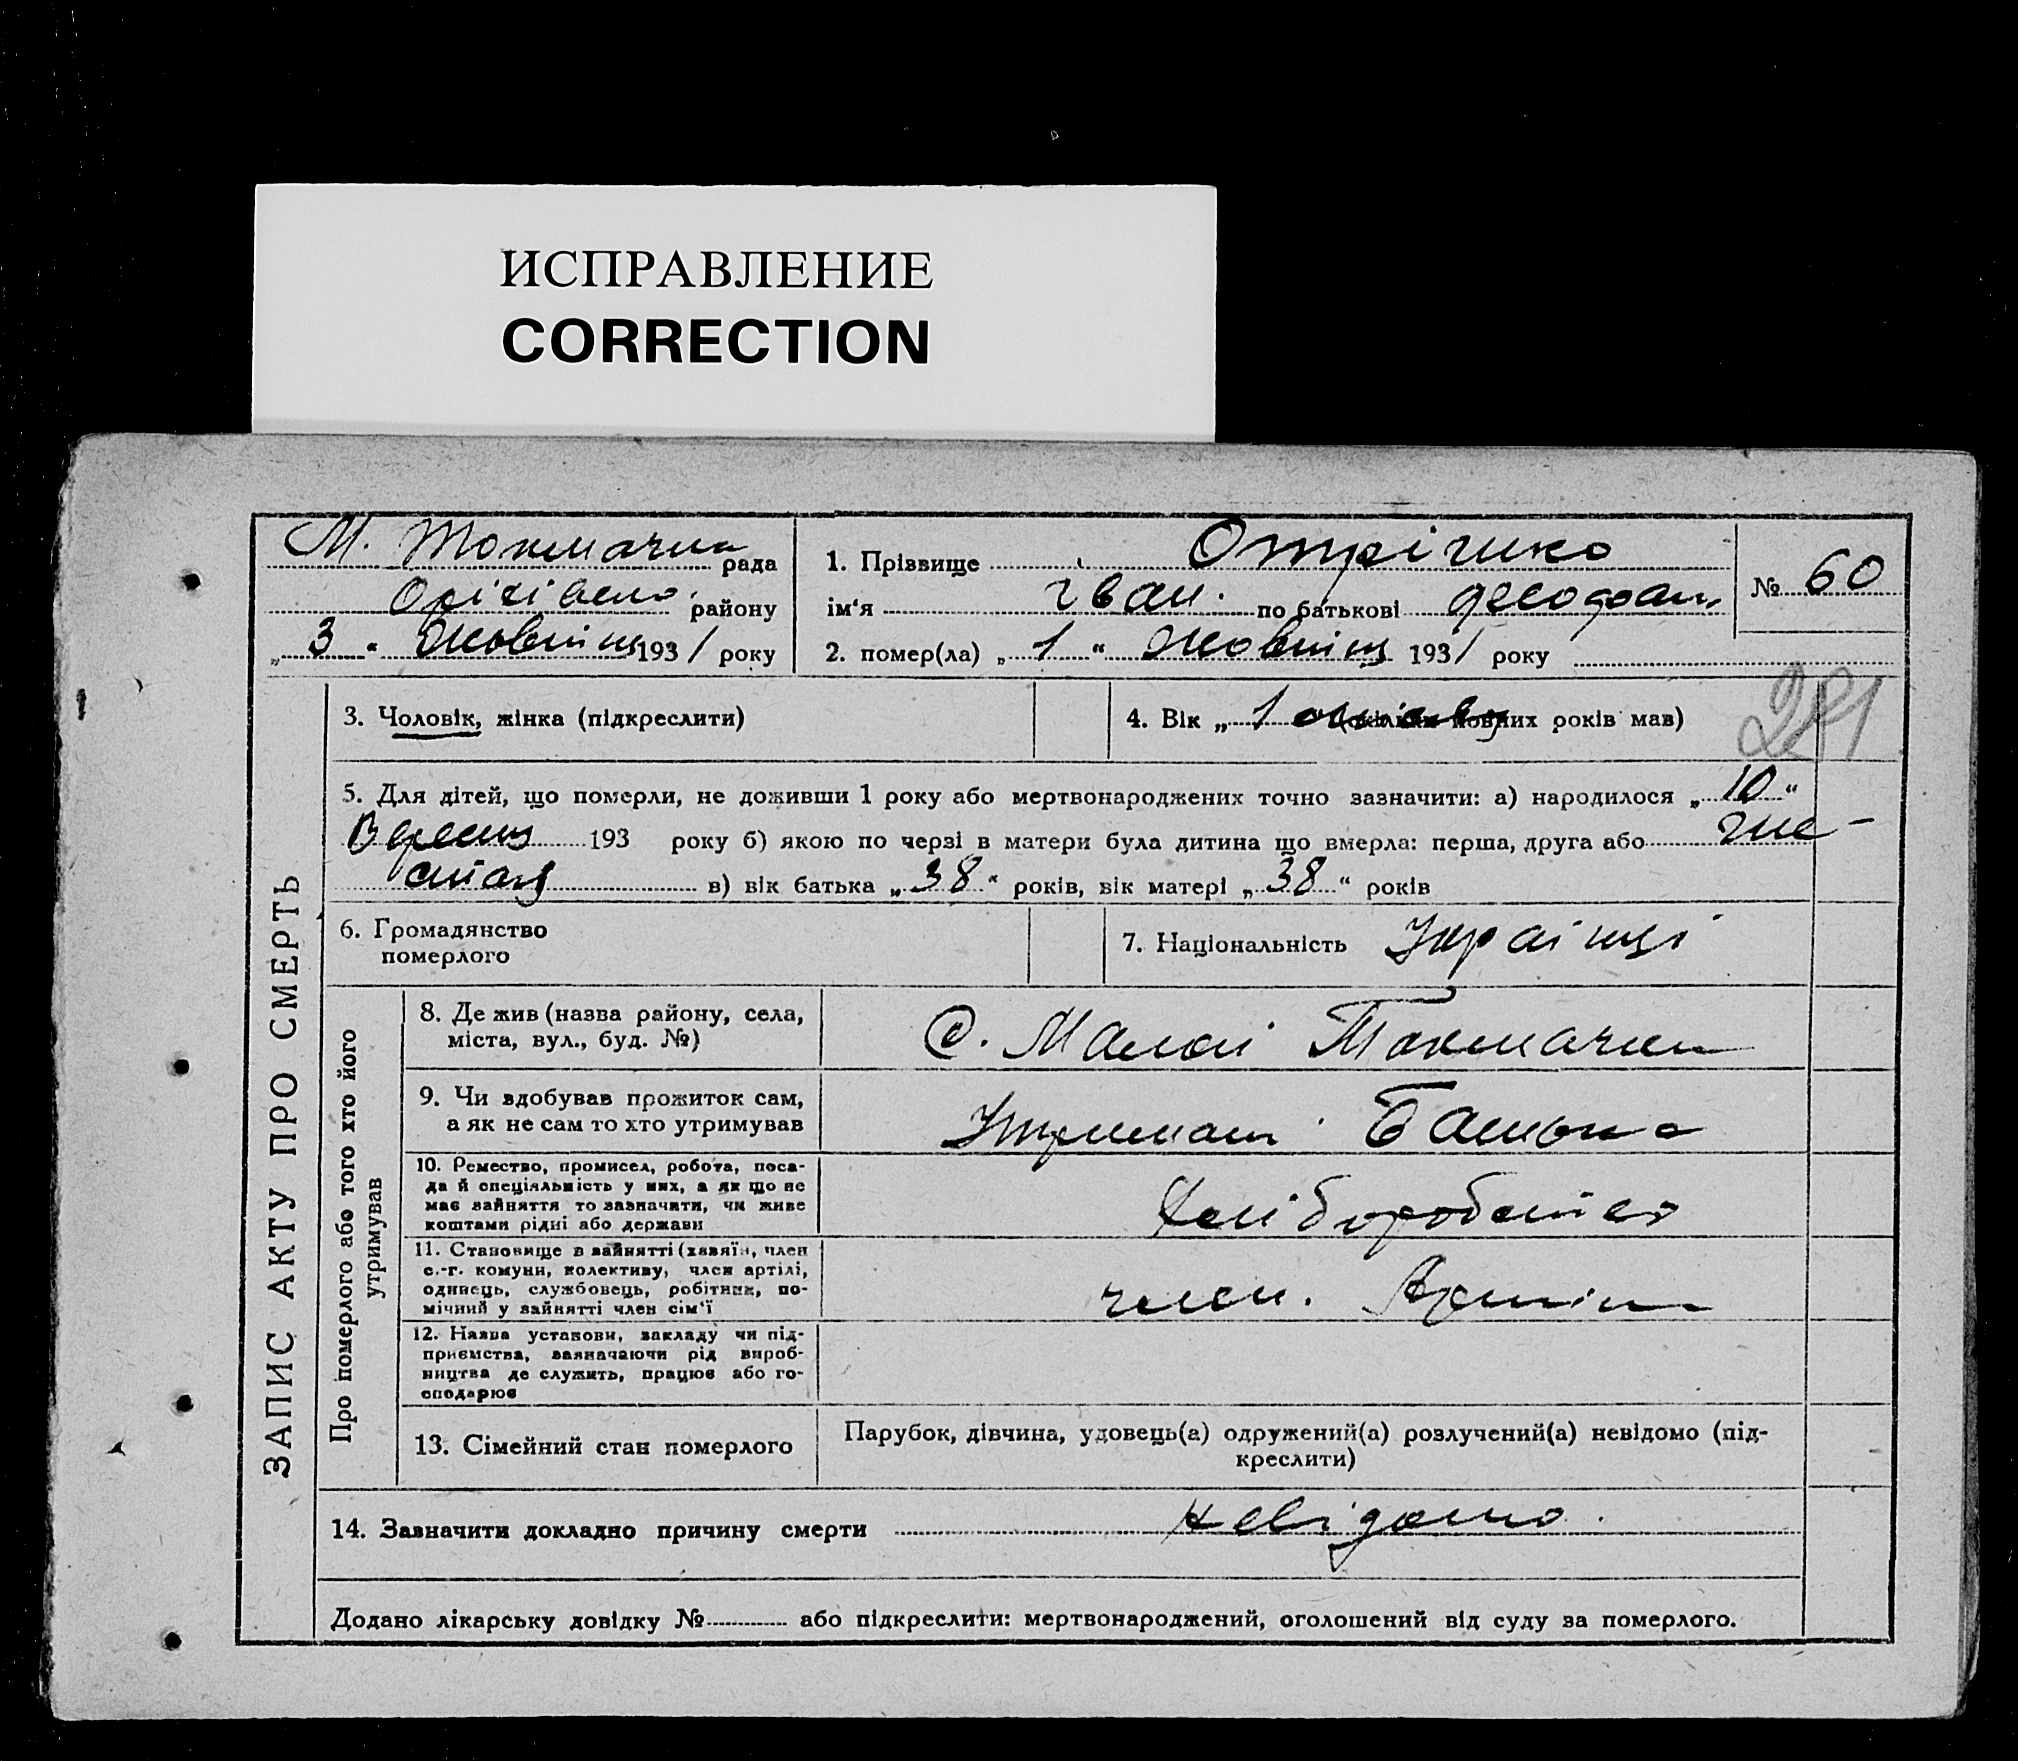 ИСПРАВЛЕНИЕ
CORRECTION
М. Токмачка рада
Оріхівсько району
„ 3 “ Жовтня 1931 року
1. Прізвище Отрішко
ім'я Іван по батькові
2. помер(ла) „ 1 “ Жовтня 1931 року
№ 60
281
3. Чоловік, жінка (підкреслити)
4. Вік „ 1 (скільки повних років мав)
5. Для дітей, що померли, не доживши 1 року або мертвонароджених точно зазначити: а) народилося „ 10 “
Вересня 193 року б) якою по черзі в матери була дитина що вмерла: перша, друга або ше-
стая в) вік батька „ 38 “ років, вік матері „ 38 “ років
6. Громадянство
померлого
7. Національність Українці
ЗАПИС АКТУ ПРО СМЕРТЬ
Про померлого або того хто його
утримував
8. Де жив (назва району, села,
міста, вул., буд. №)
С. Малої Токмачки
9. Чи здобував прожиток сам,
а як не сам то хто утримував
Утримант Батька
10. Ремество, промисел, робота, поса-
да й спеціяльність у них, а як що не
має зайняття то зазначити, чи живе
коштами рідні або держави
Хліборобство
11. Становище в зайнятті (хазяїн, член
с.-г. комуни, колективу, член артілі,
одинець, службовець, робітник, по-
мічний у зайнятті член сім'ї
член. Артіли
12. Назва установи, закладу чи під-
приємства, зазначаючи рід вироб-
ництва де служить, працює або го-
сподарює
13. Сімейний стан померлого
Парубок, дівчина, удовець(а) одружений(а) розлучений(а) невідомо (під-
креслити)
14. Зазначити докладно причину смерти невідомо.
Додано лікарську довідку № або підкреслити: мертвонароджений, оголошений від суду за померлого.